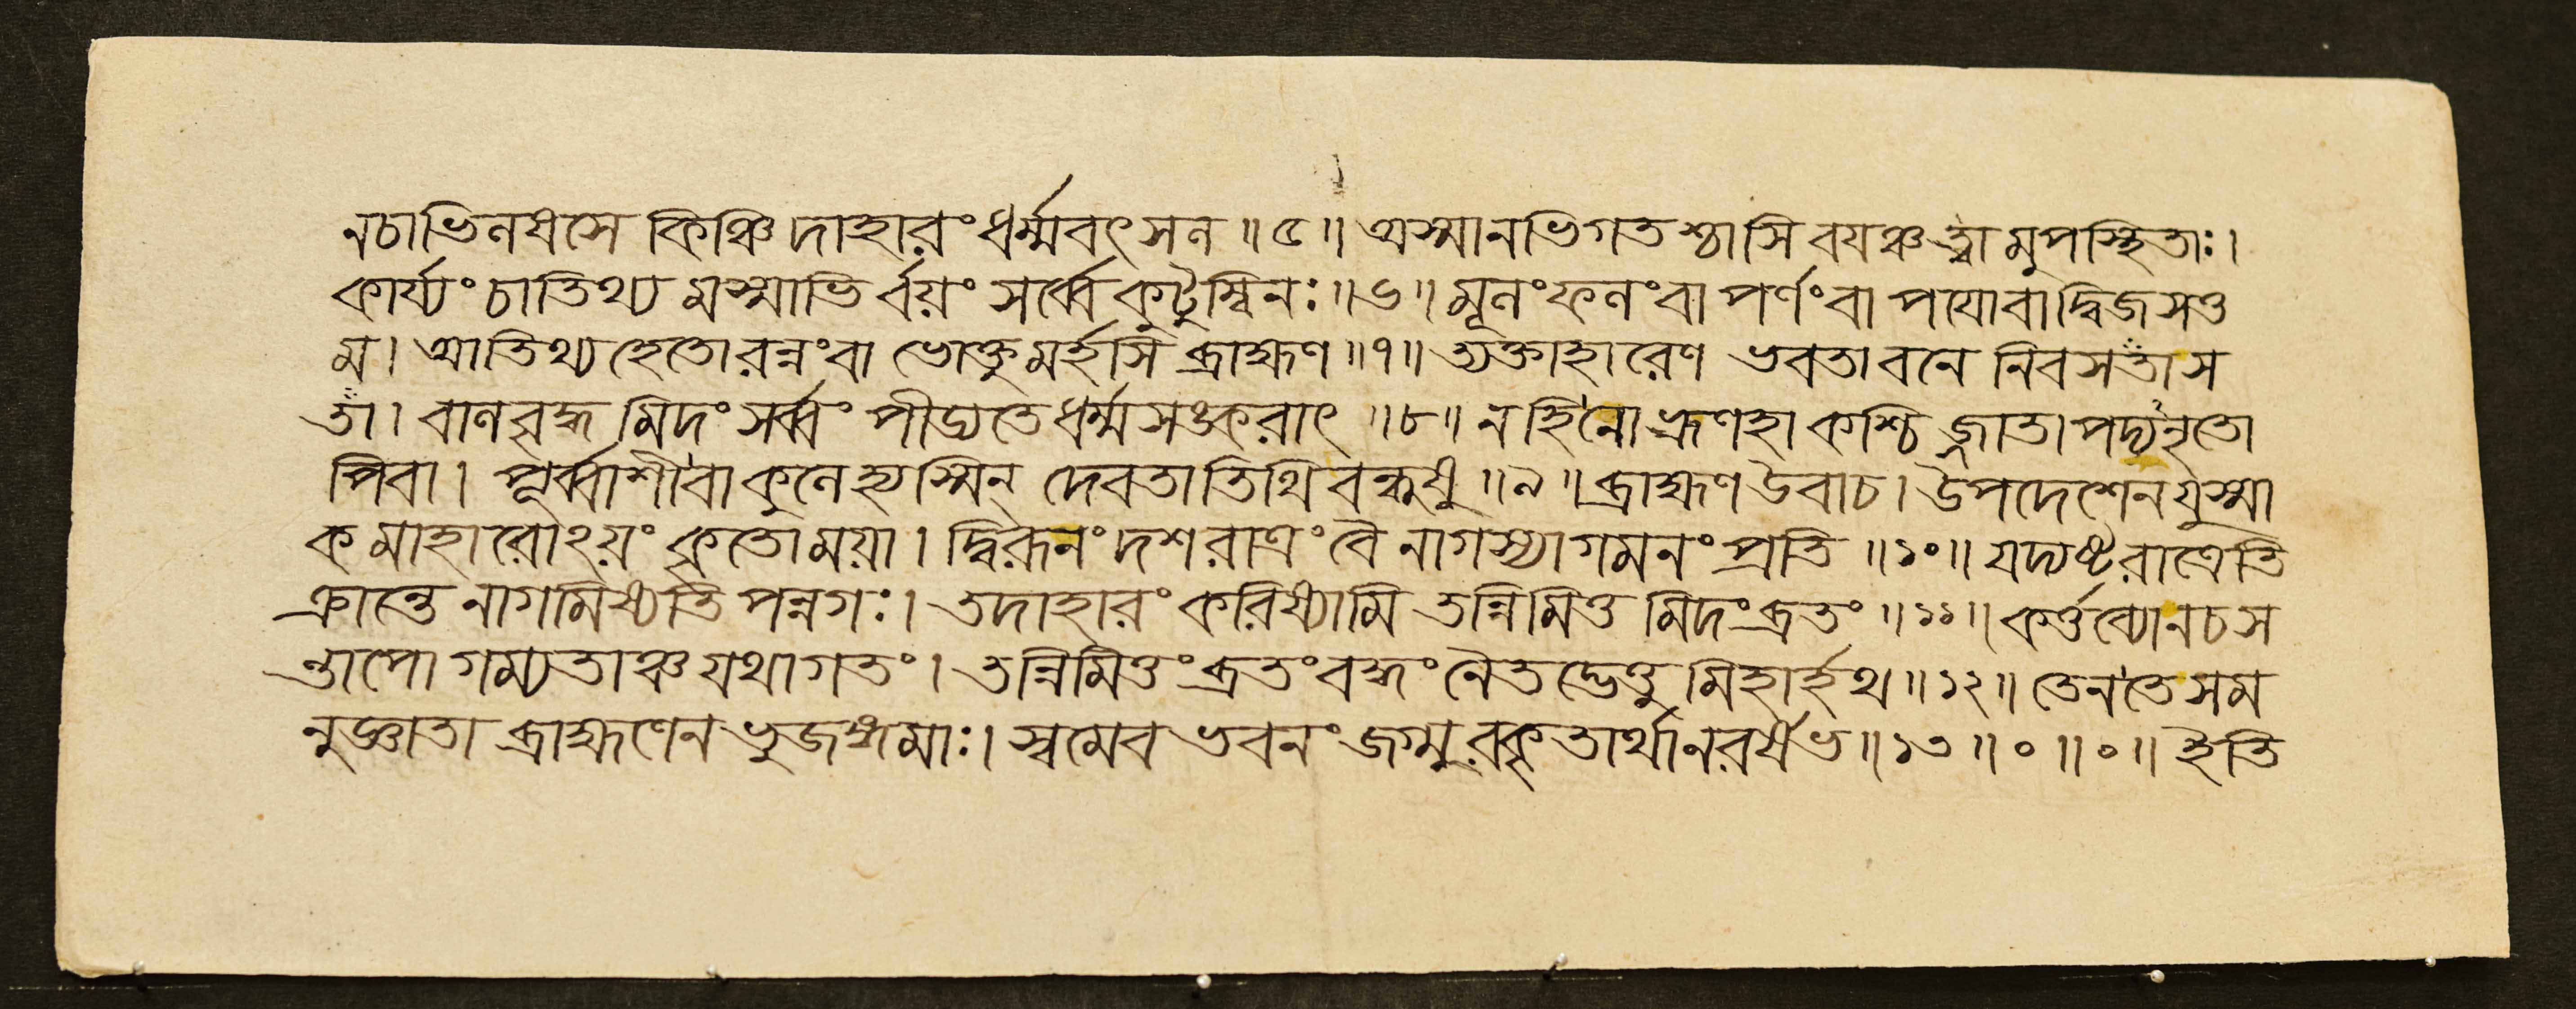 নচাভিলষসে কিঞ্চিদাহারং ধর্ম্মবৎসল॥৫॥ অস্মানভিগতশ্চাসি বযঞ্চত্বামুপস্থিতাঃ।
কার্য্যং চাতিথ্যমস্মাভির্বয়ং সর্ব্বে কুটুম্বিনঃ॥৬॥ মূলং ফলং বা পর্ণং বা পযোবা দ্বিজসত্ত
ম। আতিথ্যহেতোরন্নং বা ভোক্তুমর্হসি ব্রাহ্মণ॥৭॥ ত্যক্তাহারেণ ভবতা বনে নিবসতা স
তা। বালবৃদ্ধমিদং সর্ব্বং পীড্যতে ধর্ম্মসঙ্করাৎ॥৮॥ নহি নো ভ্রূণহা কশ্চিজ্জাতাপদ্যনৃতো
পিবা। পূর্ব্বাশী বা কুলেহ্যস্মিন্ দেবতাতিথিবন্ধুষু॥৯॥ ব্রাহ্মণ উবাচ। উপদেশেন যুষ্মা
কমাহারোঽয়ং কৃতো ময়া। দ্বিরূনং দশরাত্রং বৈ নাগস্যাগমনং প্রতি॥১০॥ যদ্যষ্টরাত্রেতি
ক্রান্তে নাগমিষ্যতি পন্নগঃ। তদাহারং করিষ্যামি তন্নিমিত্তমিদং ব্রতং॥১১॥ কর্ত্তব্যো নচ স
ন্তাপো গম্যতাঞ্চ যথাগতং। তন্নিমিত্তং ব্রতং বহ্মং নৈতদ্ভেত্তুমিহার্হথ॥১২॥ তেন তে সম
নুজ্ঞাতা ব্রাহ্মণেন ভুজঙ্গমাঃ। স্বমেব ভবনং জগ্মুরকৃতার্থা নরর্ষভ॥১৩॥০॥০॥ ইতি